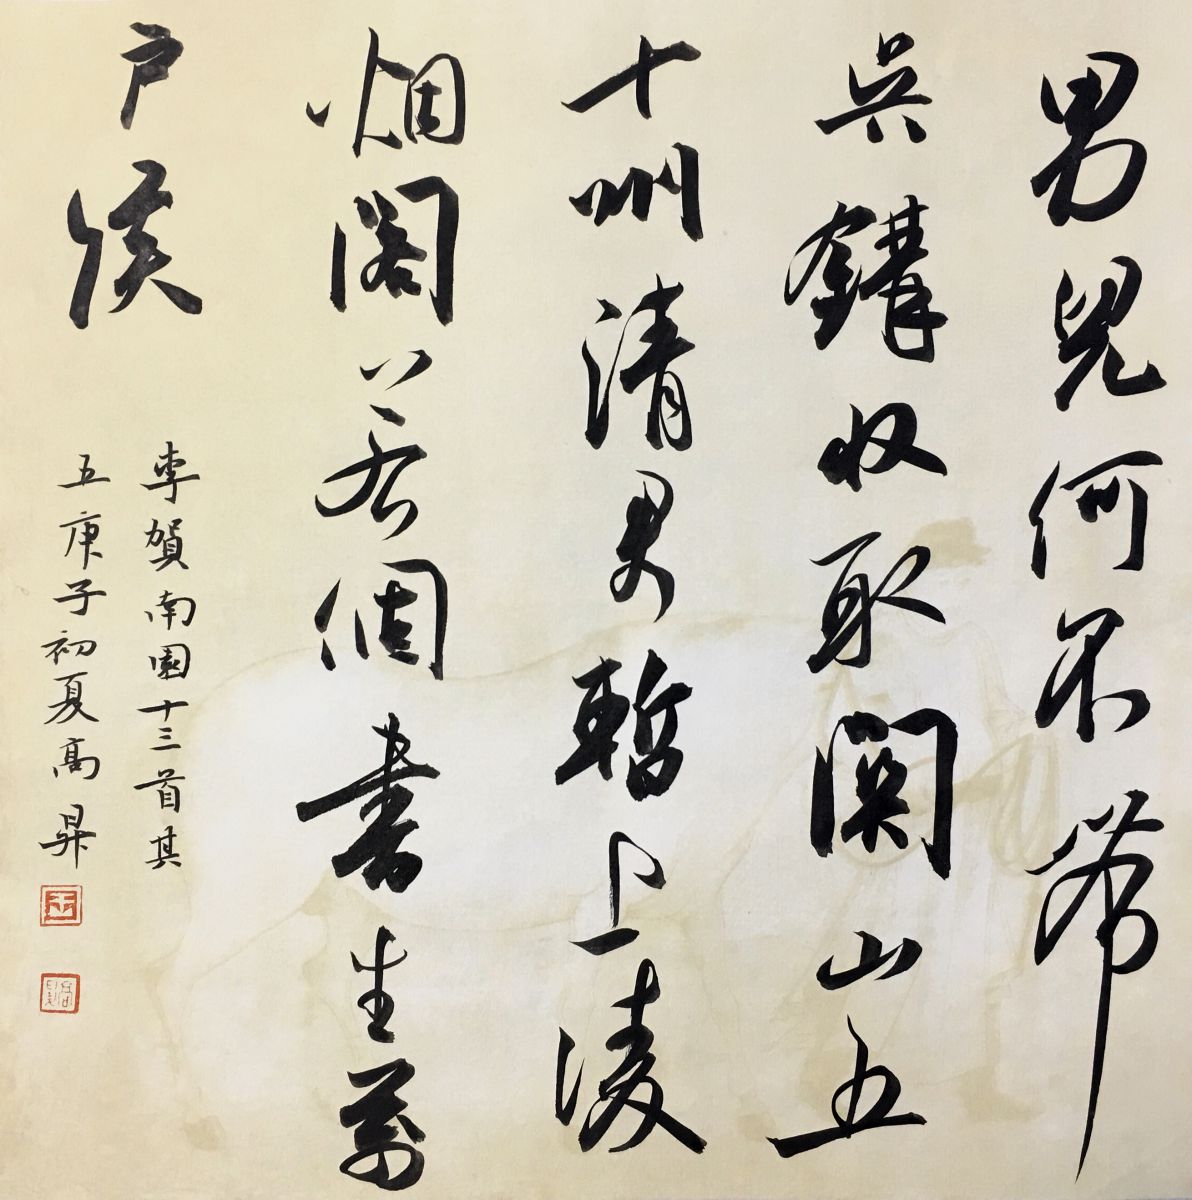 男兒何不帶
吳收取關山五
十州請君暫上凌
烟閣若個書生萬
户侯
李賀南園十三首其
五庚子初夏高昇